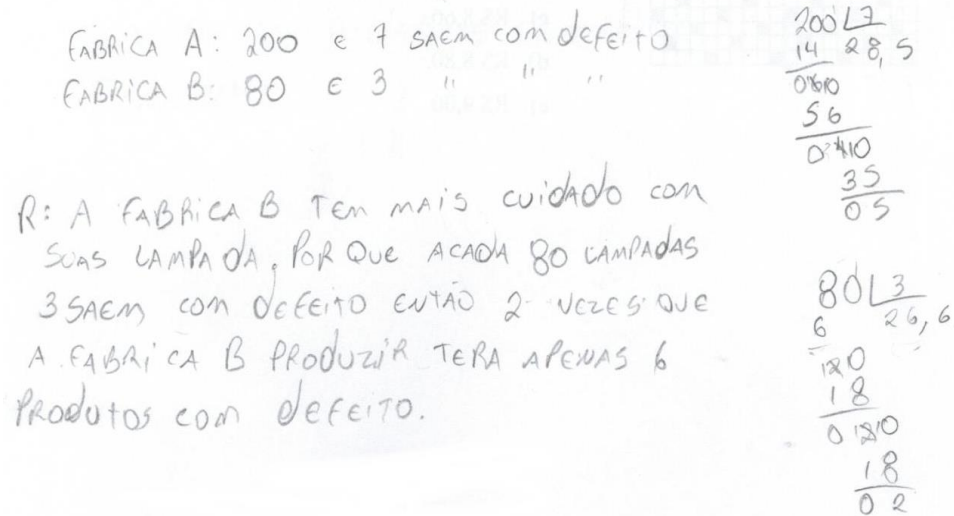 FABRICA A: 200 e 7 SAEM com defeito
FABRICA B: 80 e 3 " " "
R: A FABRICA B TEM MAIS cuidado com
SUAS LAMPADA, POR QUE ACADA 80 LAMPADAS
3 SAEM com DEFEITO ENTÃO 2 VEZES QUE
A FABRICA B PRODUZIR TERA APENAS 6
PRODUTOS com DEFEITO.
200 7
14 28,5
060
56
040
35
05
80 3
6 26,6
20
18
020
18
02